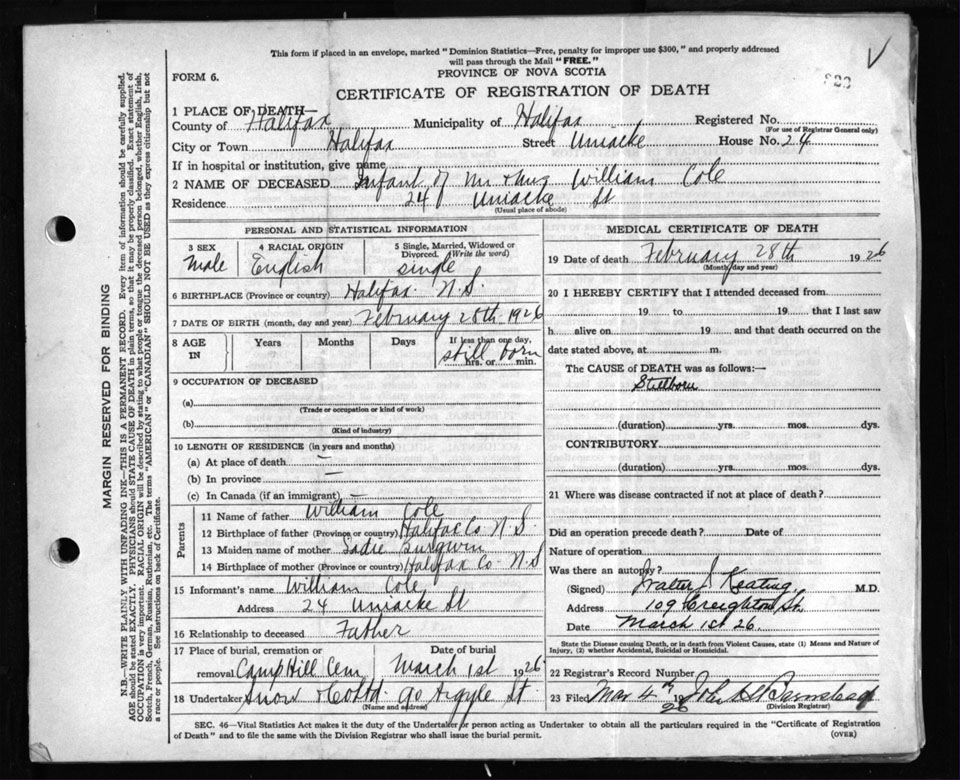 This form if placed in an envelope, marked "Dominion Statistics—Free, penalty for improper use $300," and properly addressed
will pass through the Mail "FREE."
FORM 6.
PROVINCE OF NOVA SCOTIA
CERTIFICATE OF REGISTRATION OF DEATH
1 PLACE OF DEATH—
County of Halifax Municipality of Halifax Registered No.
(For use of Registrar General only)
City or Town Halifax Street Uniacke House No. 24
If in hospital or institution, give name
2 NAME OF DECEASED Infant of Mr & Mrs William Cole
Residence 24 Uniacke St
(Usual place of abode)
PERSONAL AND STATISTICAL INFORMATION
3 SEX 4 RACIAL ORIGIN 5 Single, Married, Widowed or
Divorced. (Write the word)
Male English single
6 BIRTHPLACE (Province or country) Halifax N.S.
7 DATE OF BIRTH (month, day and year) February 28th 1926
8 AGE IN Years Months Days If less than one day,
still born
hrs. or min.
9 OCCUPATION OF DECEASED
(a)
(Trade or occupation or kind of work)
(b)
(Kind of industry)
10 LENGTH OF RESIDENCE (in years and months)
(a) At place of death —
(b) In province —
(c) In Canada (if an immigrant) —
Parents
11 Name of father William Cole
12 Birthplace of father (Province or country) Halifax Co N.S.
13 Maiden name of mother Sadie
14 Birthplace of mother (Province or country) Halifax Co. N.S
15 Informant's name William Cole
Address 24 Uniacke St
16 Relationship to deceased Father
17 Place of burial, cremation or Date of burial
removal Camp Hill Cem March 1st 1926
18 Undertaker Snow & Co Ltd 90 Argyle St
(Name and address)
MEDICAL CERTIFICATE OF DEATH
19 Date of death February 28th 1926
(Month, day and year)
20 I HEREBY CERTIFY that I attended deceased from
19 to 19 that I last saw
h alive on 19 and that death occurred on the
date stated above, at m.
The CAUSE OF DEATH was as follows:—
Stillborn
(duration) yrs. mos. dys.
CONTRIBUTORY
(duration) yrs. mos. dys.
21 Where was disease contracted if not at place of death?
Did an operation precede death? Date of
Nature of operation
Was there an autopsy?
(Signed) Walter J. Keating, M.D.
Address 109 Creighton St.
Date March 1st 26.
State the Disease causing Death, or in death from Violent Causes, state (1) Means and Nature of
Injury, (2) whether Accidental, Suicidal or Homicidal.
22 Registrar's Record Number
23 Filed Mar 4th 1926 John Barnstead
(Division Registrar)
SEC. 46—Vital Statistics Act makes it the duty of the Undertaker or person acting as Undertaker to obtain all the particulars required in the "Certificate of Registration
of Death" and to file the same with the Division Registrar who shall issue the burial permit.
(OVER)
MARGIN RESERVED FOR BINDING
N.B.—WRITE PLAINLY WITH UNFADING INK—THIS IS A PERMANENT RECORD. Every item of information should be carefully supplied.
AGE should be stated EXACTLY. PHYSICIANS should STATE CAUSE OF DEATH in plain terms, so that it may be properly classified. Exact statement of
OCCUPATION is very important. RACIAL ORIGIN will be described by stating to what people or tongue the deceased person belonged, whether English, Irish,
Scotch, French, German, Russian, Ruthenian, etc. The terms "AMERICAN" or "CANADIAN" SHOULD NOT BE USED as they express citizenship but not
a race or people. See instructions on back of Certificate.